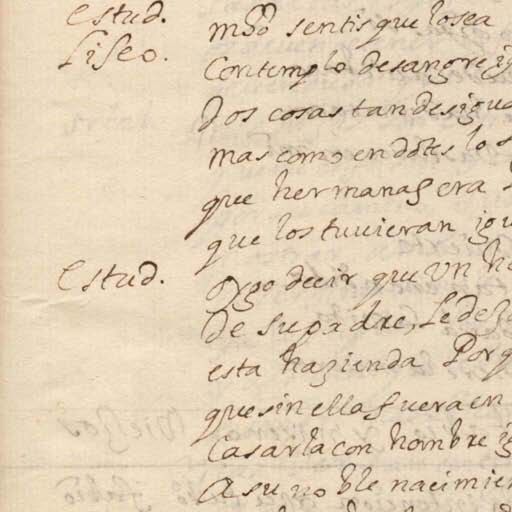 estud. mõ sentis que lo sea
Liseo. Contemplo de sangre ig
dos cosas tan desigua
mas como en dotes lo s
que hermanas era
que los tuuieran igu
Estud. oygo decir que un h
de su padre, le dexo
esta hazienda Porq
que sin ella fuera en
Casarla con hombre ig
A su noble nacimien